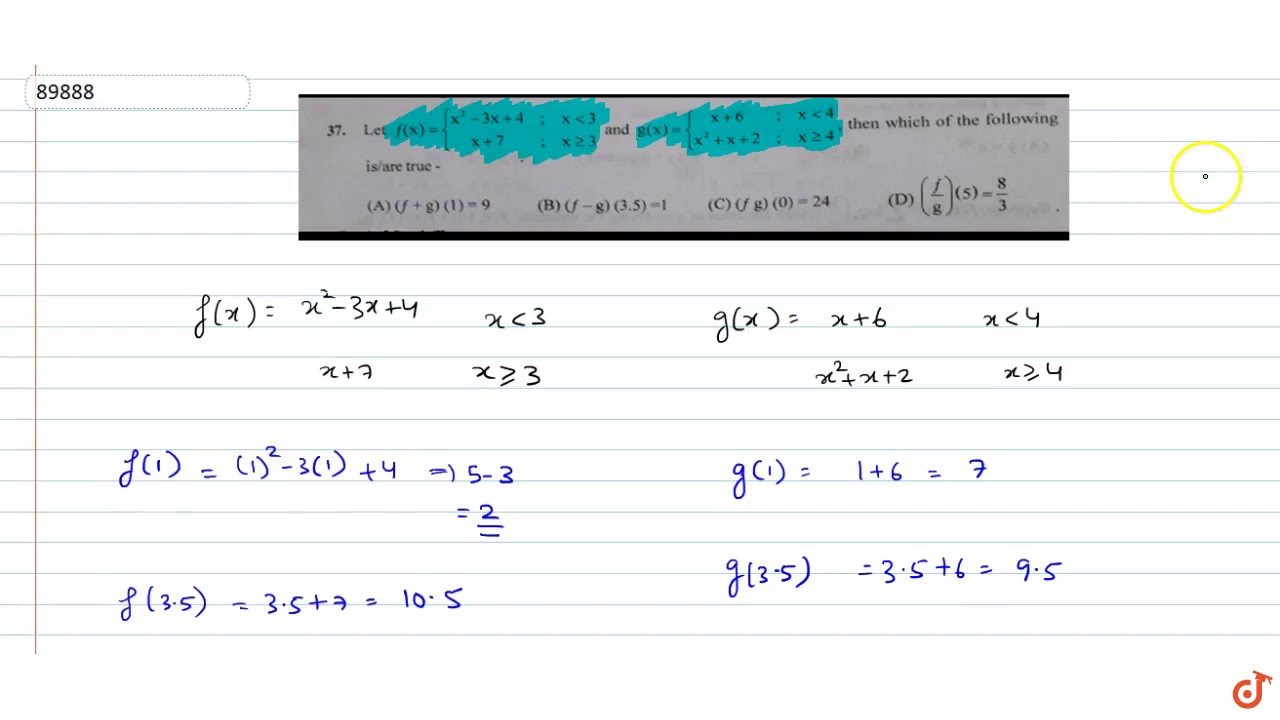 89888
37. Let f(x) = { x² −3x + 4 ; x < 3
x + 7 ; x ≥ 3 and g(x) = { x + 6 ; x < 4
x² + x + 2 ; x ≥ 4 , then which of the following
is/are true -
(A) (f + g) (1) = 9 (B) (f − g) (3.5) =1 (C) (f g) (0) = 24 (D) (f/g)(5) = 8/3 .
f(x) = x² − 3x + 4 x < 3 g(x) = x + 6 x < 4
x + 7 x ≥ 3 x² + x + 2 x ≥ 4
f(1) = (1)² − 3(1) + 4 ⇒ 5 − 3 g(1) = 1 + 6 = 7
= 2
f(3.5) = 3.5 + 7 = 10.5 g(3.5) = 3.5 + 6 = 9.5